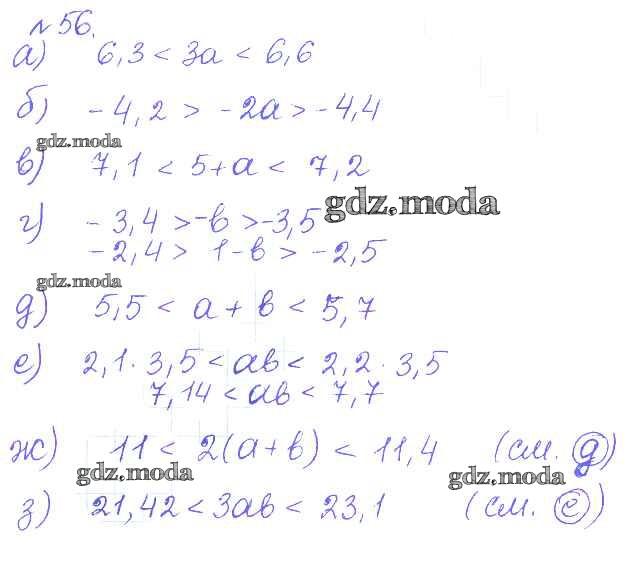 № 56.
а) 6,3 < 3a < 6,6
б) -4,2 > -2a > -4,4
gdz.moda
в) 7,1 < 5+a < 7,2
gdz.moda
г) -3,4 > -b > -3,5
-2,4 > 1-b > -2,5
gdz.moda
д) 5,5 < a + b < 5,7
е) 2,1 · 3,5 < ab < 2,2 · 3,5
7,14 < ab < 7,7
ж) 11 < 2(a+b) < 11,4 (см. д)
gdz.moda
gdz.moda
з) 21,42 < 3ab < 23,1 (см. е)